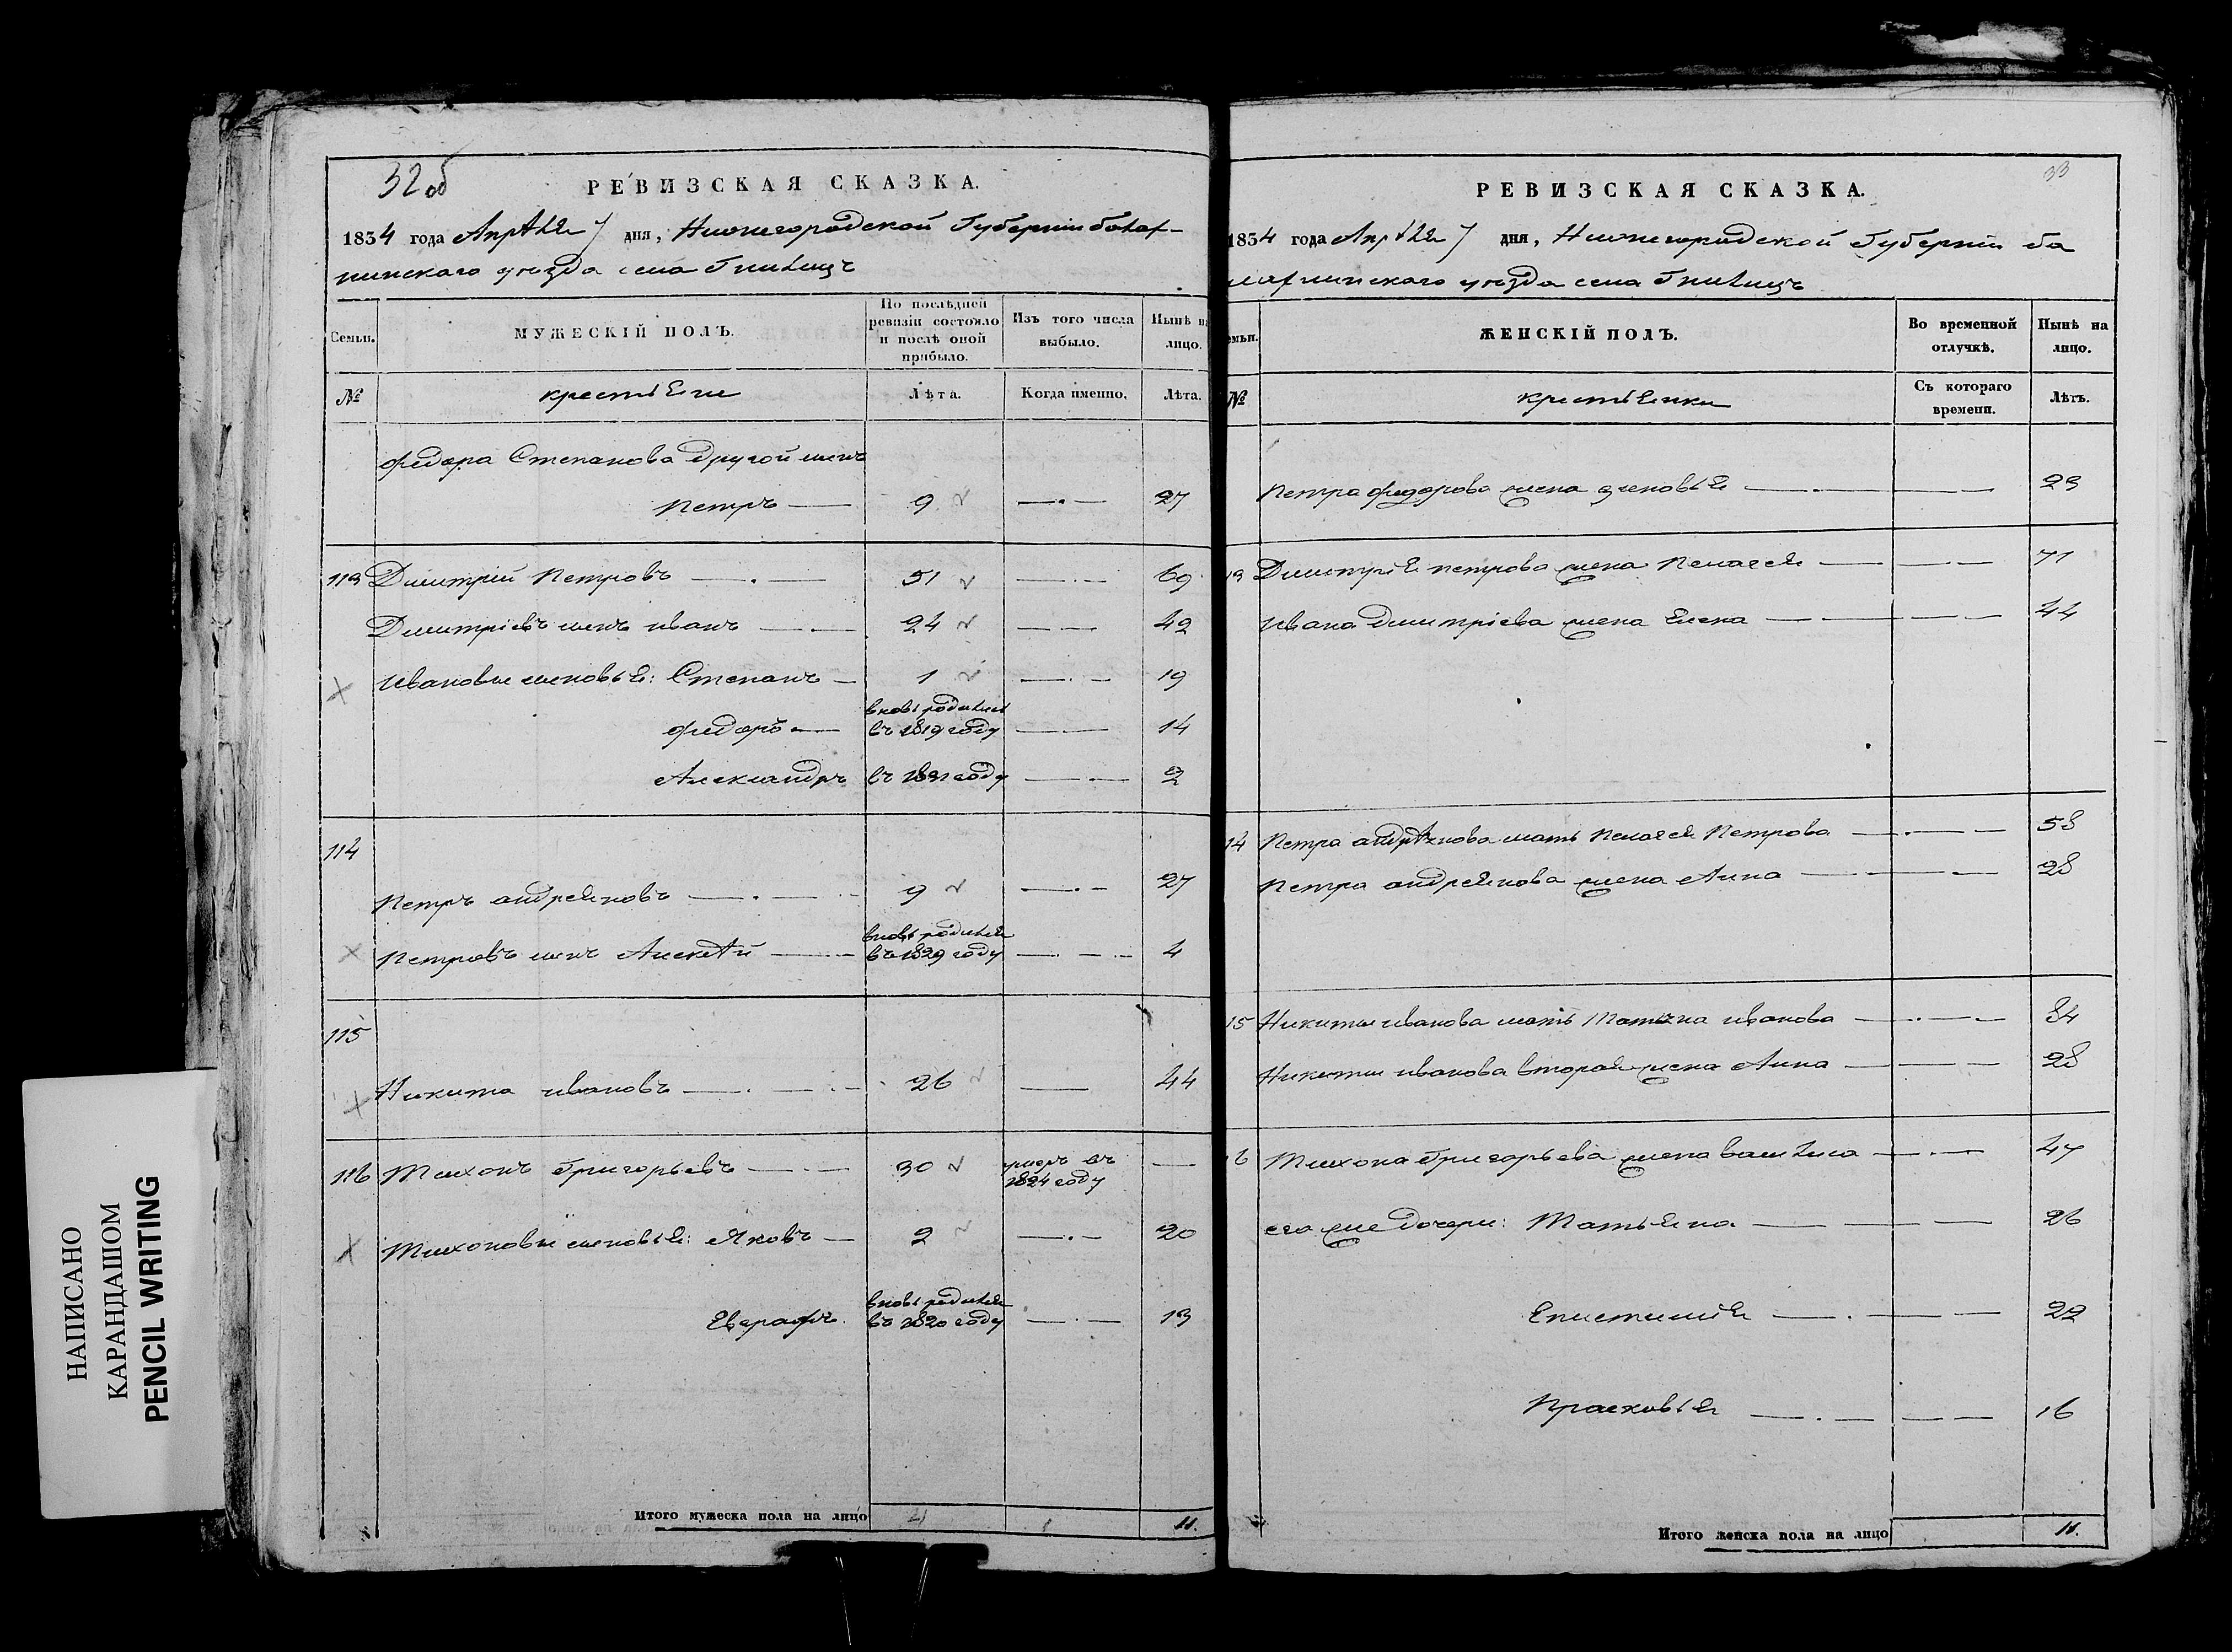 32 об
РЕВИЗСКАЯ СКАЗКА.
1834 года Апрѣля 7 дня, Нижегородской Губерніи балах-
нинскаго уѣзда села Гнилицъ
Семьи.
МУЖЕСКІЙ ПОЛЪ.
По послѣдней ревизіи состояло и послѣ оной прибыло.
Изъ того числа выбыло.
Нынѣ на лицо.
№
крестьяне
Лѣта.
Когда именно.
Лѣта.
Федора Степанова другой сынъ
Петръ 9 27
113 Димитрій Петровъ 51 69
Димитріевъ сынъ иванъ 24 42
Ивановы сыновья: Степанъ 1 19
Федоръ вновь родился въ 1819 году 14
Александръ въ 1831 году 2
114
Петръ андреяновъ 9 27
Петровъ сынъ Алексѣй вновь родился въ 1829 году 4
115
Никита ивановъ 26 44
116 Тихонъ Григорьевъ 30 умеръ въ 1824 году
Тихоновы сыновья: Яковъ 2 20
Евграфъ вновь родился въ 1820 году 13
Итого мужеска пола на лицо 11.
33
РЕВИЗСКАЯ СКАЗКА.
1834 года Апрѣля 7 дня, Нижегородской Губерніи ба
лахнинскаго уѣзда села Гнилицъ
ЖЕНСКІЙ ПОЛЪ.
Во временной отлучкѣ.
Нынѣ на лицо.
№
крестьянки
Съ котораго времени.
Лѣтъ.
Петра федорова жена зиновья 23
13 Димитрія петрова жена Пелагея 71
Ивана димитріева жена Елена 44
14 Петра андреянова мать Пелагея Петрова 58
Петра андреянова жена Анна 28
15 Никиты иванова мать Татьяна иванова 84
Никиты иванова вторая жена Анна 28
16 Тихона Григорьева жена василиса 47
его же дочери: Татьяна 26
Епистимія 22
Прасковья 16
Итого женска пола на лицо 11.
НАПИСАНО
КАРАНДАШОМ
PENCIL WRITING